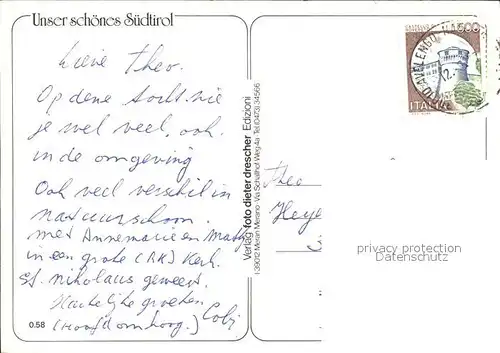 Unser schönes Südtirol
Lieve Theo.
Op deze tocht zie
je wel veel, ook
in de omgeving
Ook veel verschil in
natuurschoon.
Met Annemarie en Matty
in een grote (RK) Kerk.
St. Nikolaus geweest.
Hartelijke groeten
(Hoofd omhoog.) Cobi
0.58
Verlag foto dieter drescher Edizioni
I-39012 Meran Merano - Via Schaffhof Weg 4a Tel (0473) 34566
AVELENGO
500
ITALIA
Theo
Heye
privacy protection
DatenschutzRahmen